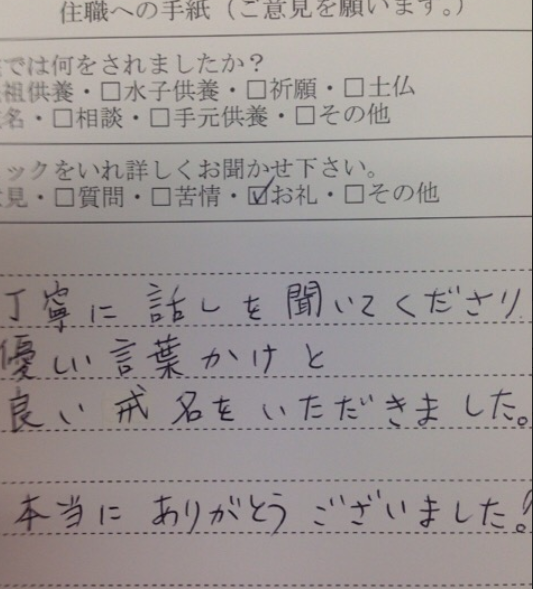 住職への手紙（ご意見を願います。）
では何をされましたか？
祖供養・□水子供養・□祈願・□土仏
名・□相談・□手元供養・□その他
ックをいれ詳しくお聞かせ下さい。
見・□質問・□苦情・☑お礼・□その他
丁寧に話しを聞いてくださり
優しい言葉かけと
良い戒名をいただきました。
本当にありがとうございました!